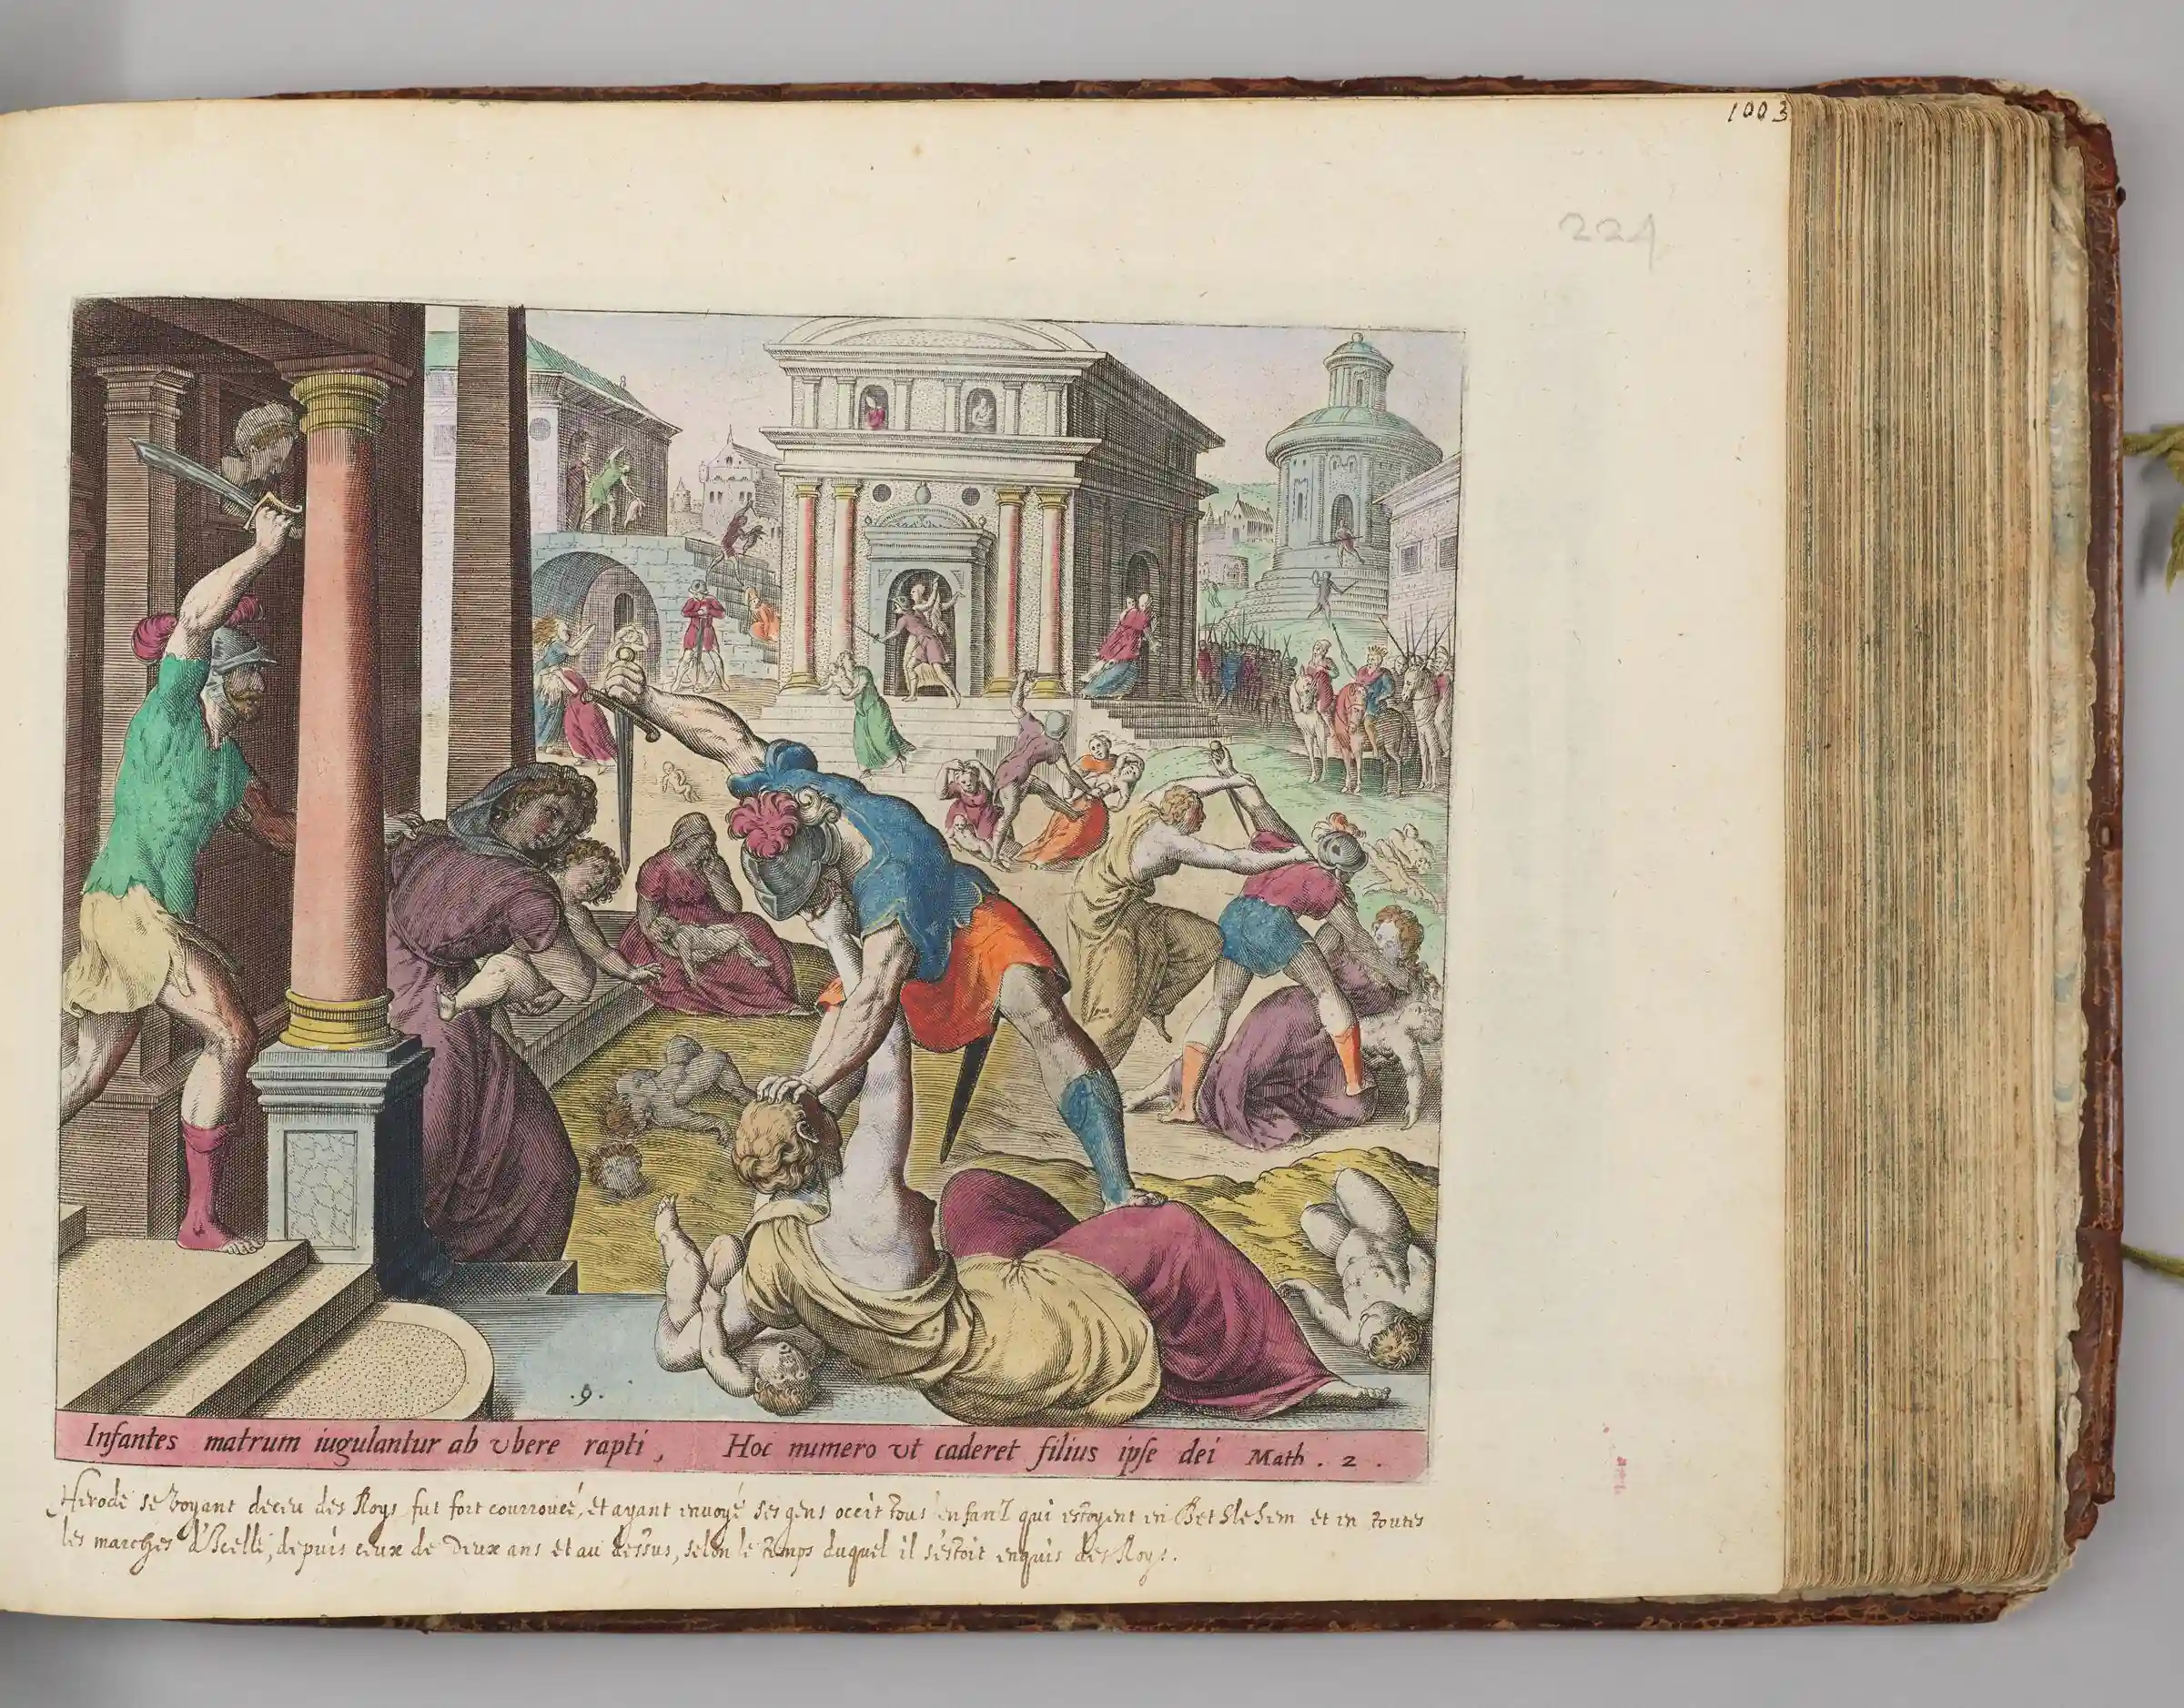 1003
224
.9.
Infantes matrum iugulantur ab vbere rapti, Hoc numero vt caderet filius ipſe dei Math. 2.
Herode se voyant deceu des Roys fut fort courroucé, et ayant envoyé ses gens occit tous enfant qui estoyent en Bethlehem et en toutes
les marches d'Icelle, depuis ceux de deux ans et au dessus, selon le temps duquel il s'estoit enquis des Roys.